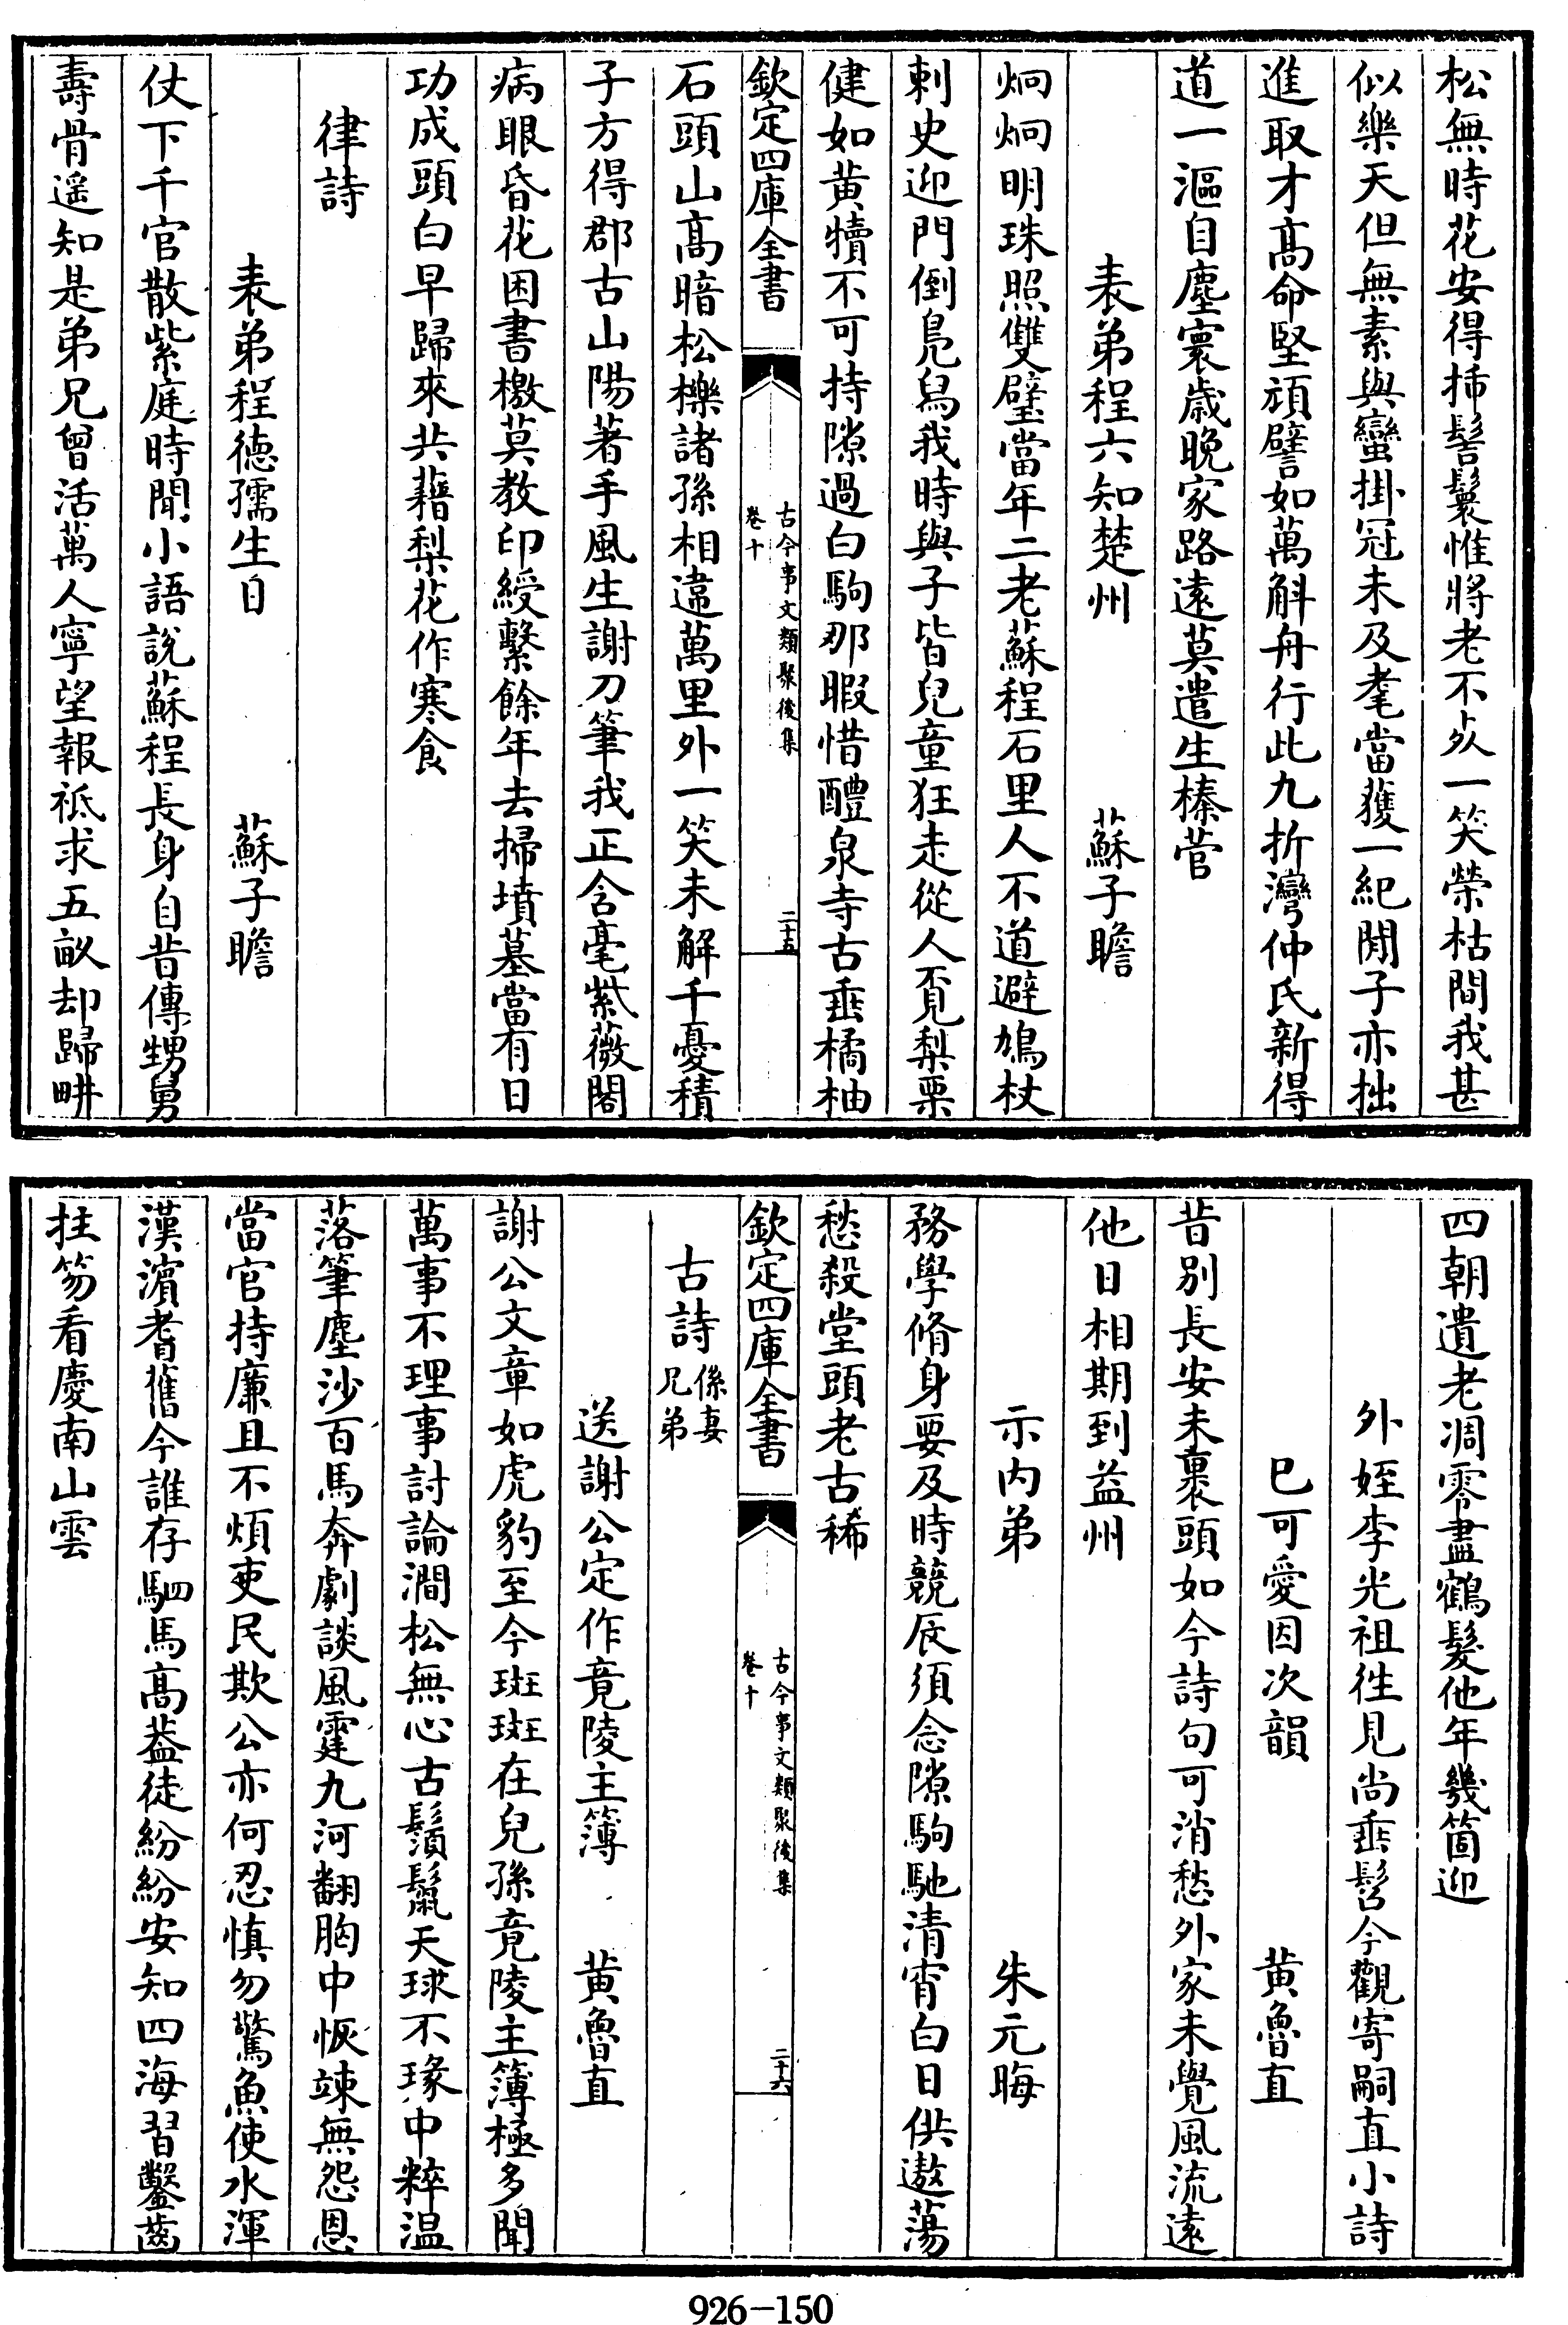 松無時花安得挿髻鬟惟將老不死一笑榮枯間我甚
似樂天但無素與蠻掛冠未及耄當獲一紀閒子亦拙
進取才髙命堅頑譬如萬斛舟行此九折灣仲氏新得
道一漚自塵寰歲晚家路遠莫遣生榛菅
表弟程六知楚州 蘇子瞻
炯炯明珠照雙璧當年二老蘇程石里人不道避鳩杖
刺史迎門倒鳧舄我時與子皆兒童狂走從人覓梨栗
健如黄犢不可持隙過白駒那暇惜醴泉寺古垂橘柚
欽定四庫全書
古今事文類聚後集
卷十
二十五
石頭山髙暗松櫟諸孫相違萬里外一笑未解千憂積
子方得郡古山陽著手風生謝刀筆我正含毫紫薇閣
病眼昏花困書檄莫教印綬繫餘年去掃墳墓當有日
功成頭白早歸來共藉梨花作寒食
律詩
表弟程徳孺生日 蘇子瞻
仗下千官散紫庭時聞小語說蘇程長身自昔傳甥舅
壽骨遥知是弟兄曾活萬人寧望報祗求五畝却歸畊
四朝遺老凋零盡鶴髮他年幾箇迎
外姪李光祖徃見尚垂髫今觀寄嗣直小詩
已可愛因次韻 黄魯直
昔别長安未裹頭如今詩句可消愁外家未覺風流逺
他日相期到益州
示内弟 朱元晦
務學脩身要及時競辰須念隙駒馳清宵白日供遨蕩
愁殺堂頭老古稀
欽定四庫全書
古今事文類聚後集
卷十
二十六
古詩係妻兄弟
送謝公定作竟陵主簿 黄魯直
謝公文章如虎豹至今斑斑在兒孫竟陵主簿極多聞
萬事不理專討論澗松無心古鬚鬣天球不瑑中粹温
落筆塵沙百馬奔劇談風霆九河翻胸中恢疎無怨恩
當官持廉且不煩吏民欺公亦何忍慎勿驚魚使水渾
漢濵耆舊今誰存駟馬髙葢徒紛紛安知四海習鑿齒
拄笏看慶南山雲
926-150